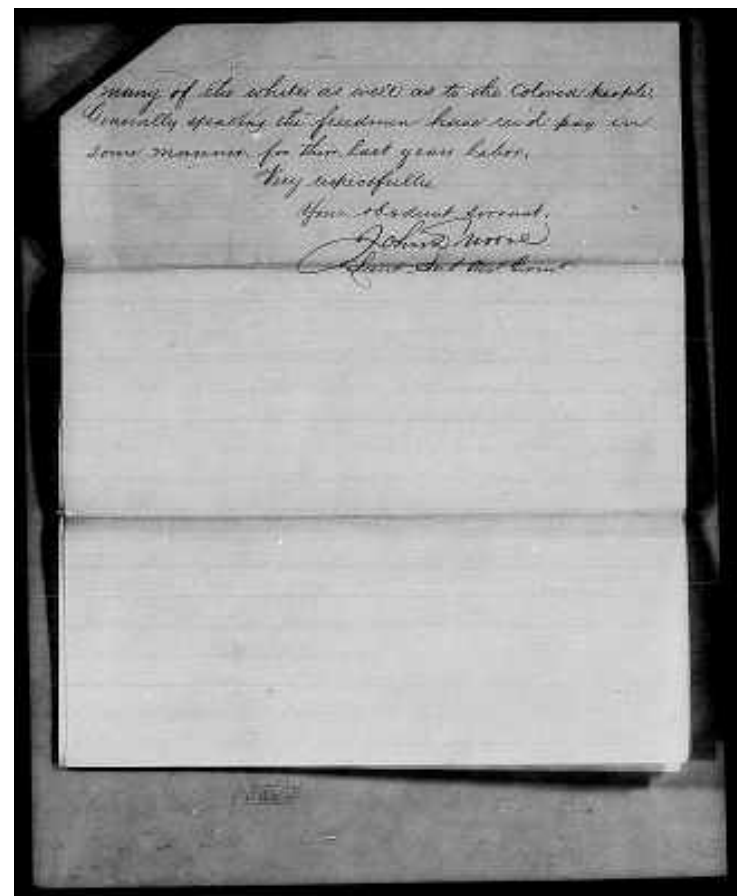 many of the whites as well as to the Colored people.
Generally speaking the freedmen have rec'd pay in
some manner for their last years labor.
Very respectfully
Your obedient servant,
John Moore